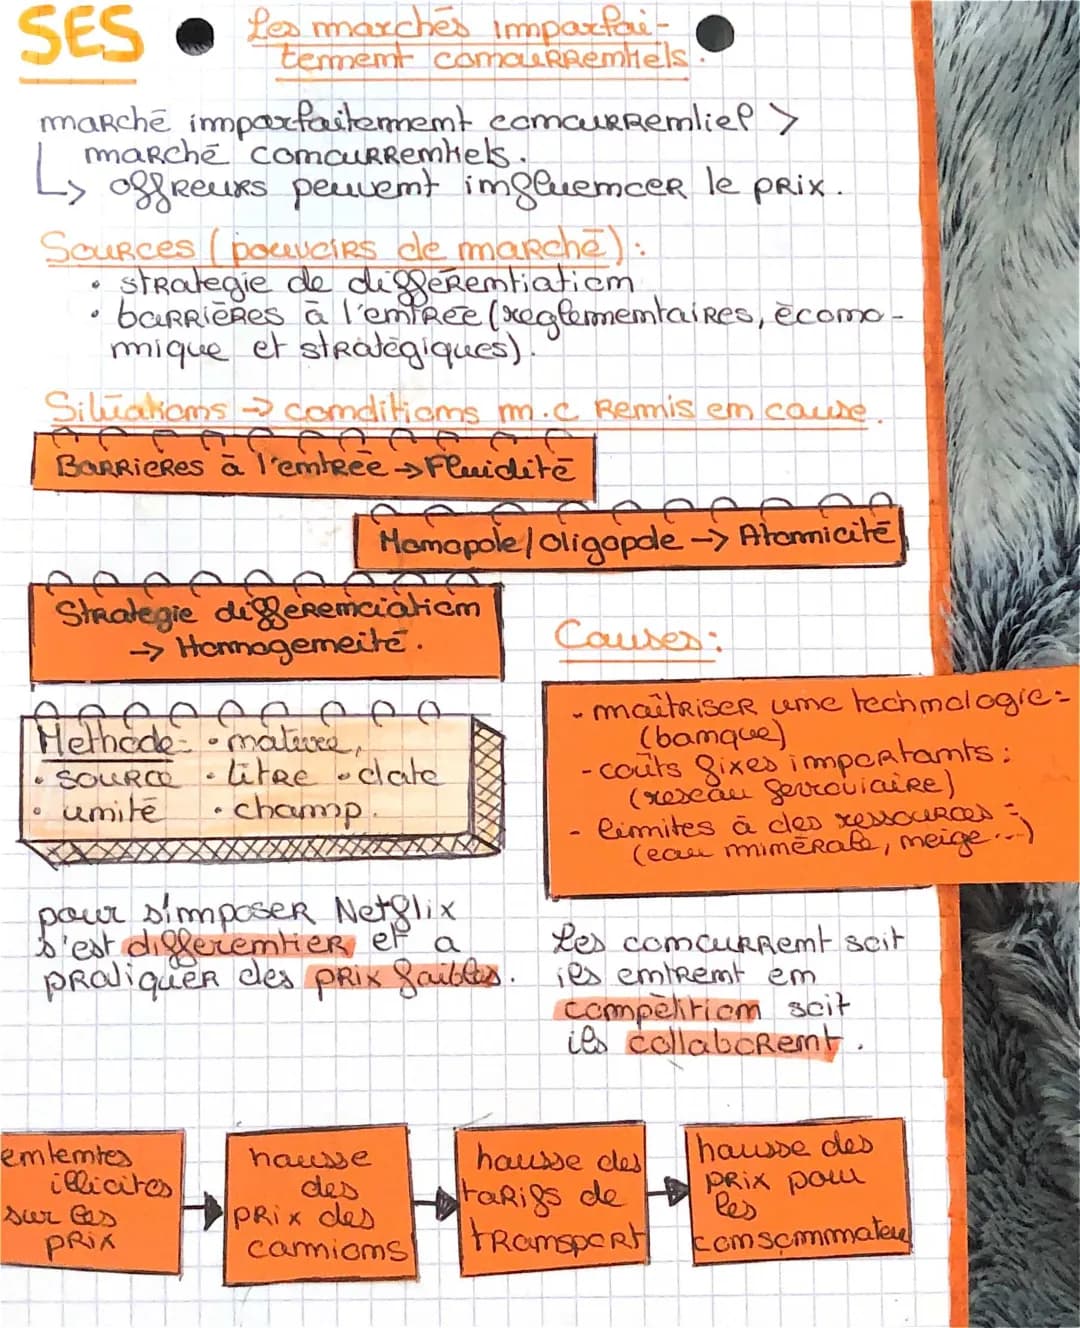 SES
Les marchés imparfai-
tement concurrentiels.
marché imparfaitement concurrentiel >
marché concurrentiels.
↳ offreurs peuvent influencer le prix.
Sources (pouvoirs de marché) :
• strategie de différentiation
• barrières à l'entrée (reglementaires, écono-
mique et stratégiques).
Situations → conditions m.c remis en cause.
Barrieres à l'entrée → Fluidité
Monopole/oligopole → Atomicité
Strategie differenciation
→ Homogeneité.
Causes :
- maîtriser une technologie :
(banque)
- coûts fixes importants :
(reseau ferroviaire)
- limites à des ressources :
(eau minérale, neige...)
Methode : • nature,
• source • titre • date
• unité • champ.
pour s'imposer Netflix
s'est differentier et a
pratiquer des prix faibles.
Les concurrent soit
ils entrent en
compétition soit
ils collaborent.
ententes
illicites
sur les
prix
hausse
des
prix des
camions
hausse des
tarifs de
transport
hausse des
prix pour
les
consommateu